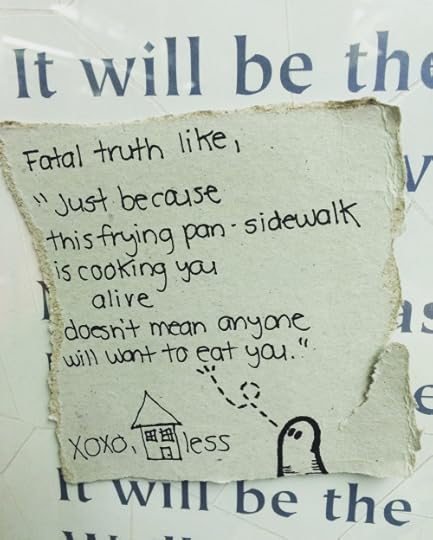 It will be the
Fatal truth like,
"Just because
this frying pan-sidewalk
is cooking you
alive
doesn't mean anyone
will want to eat you."
xoxo, less
It will be the